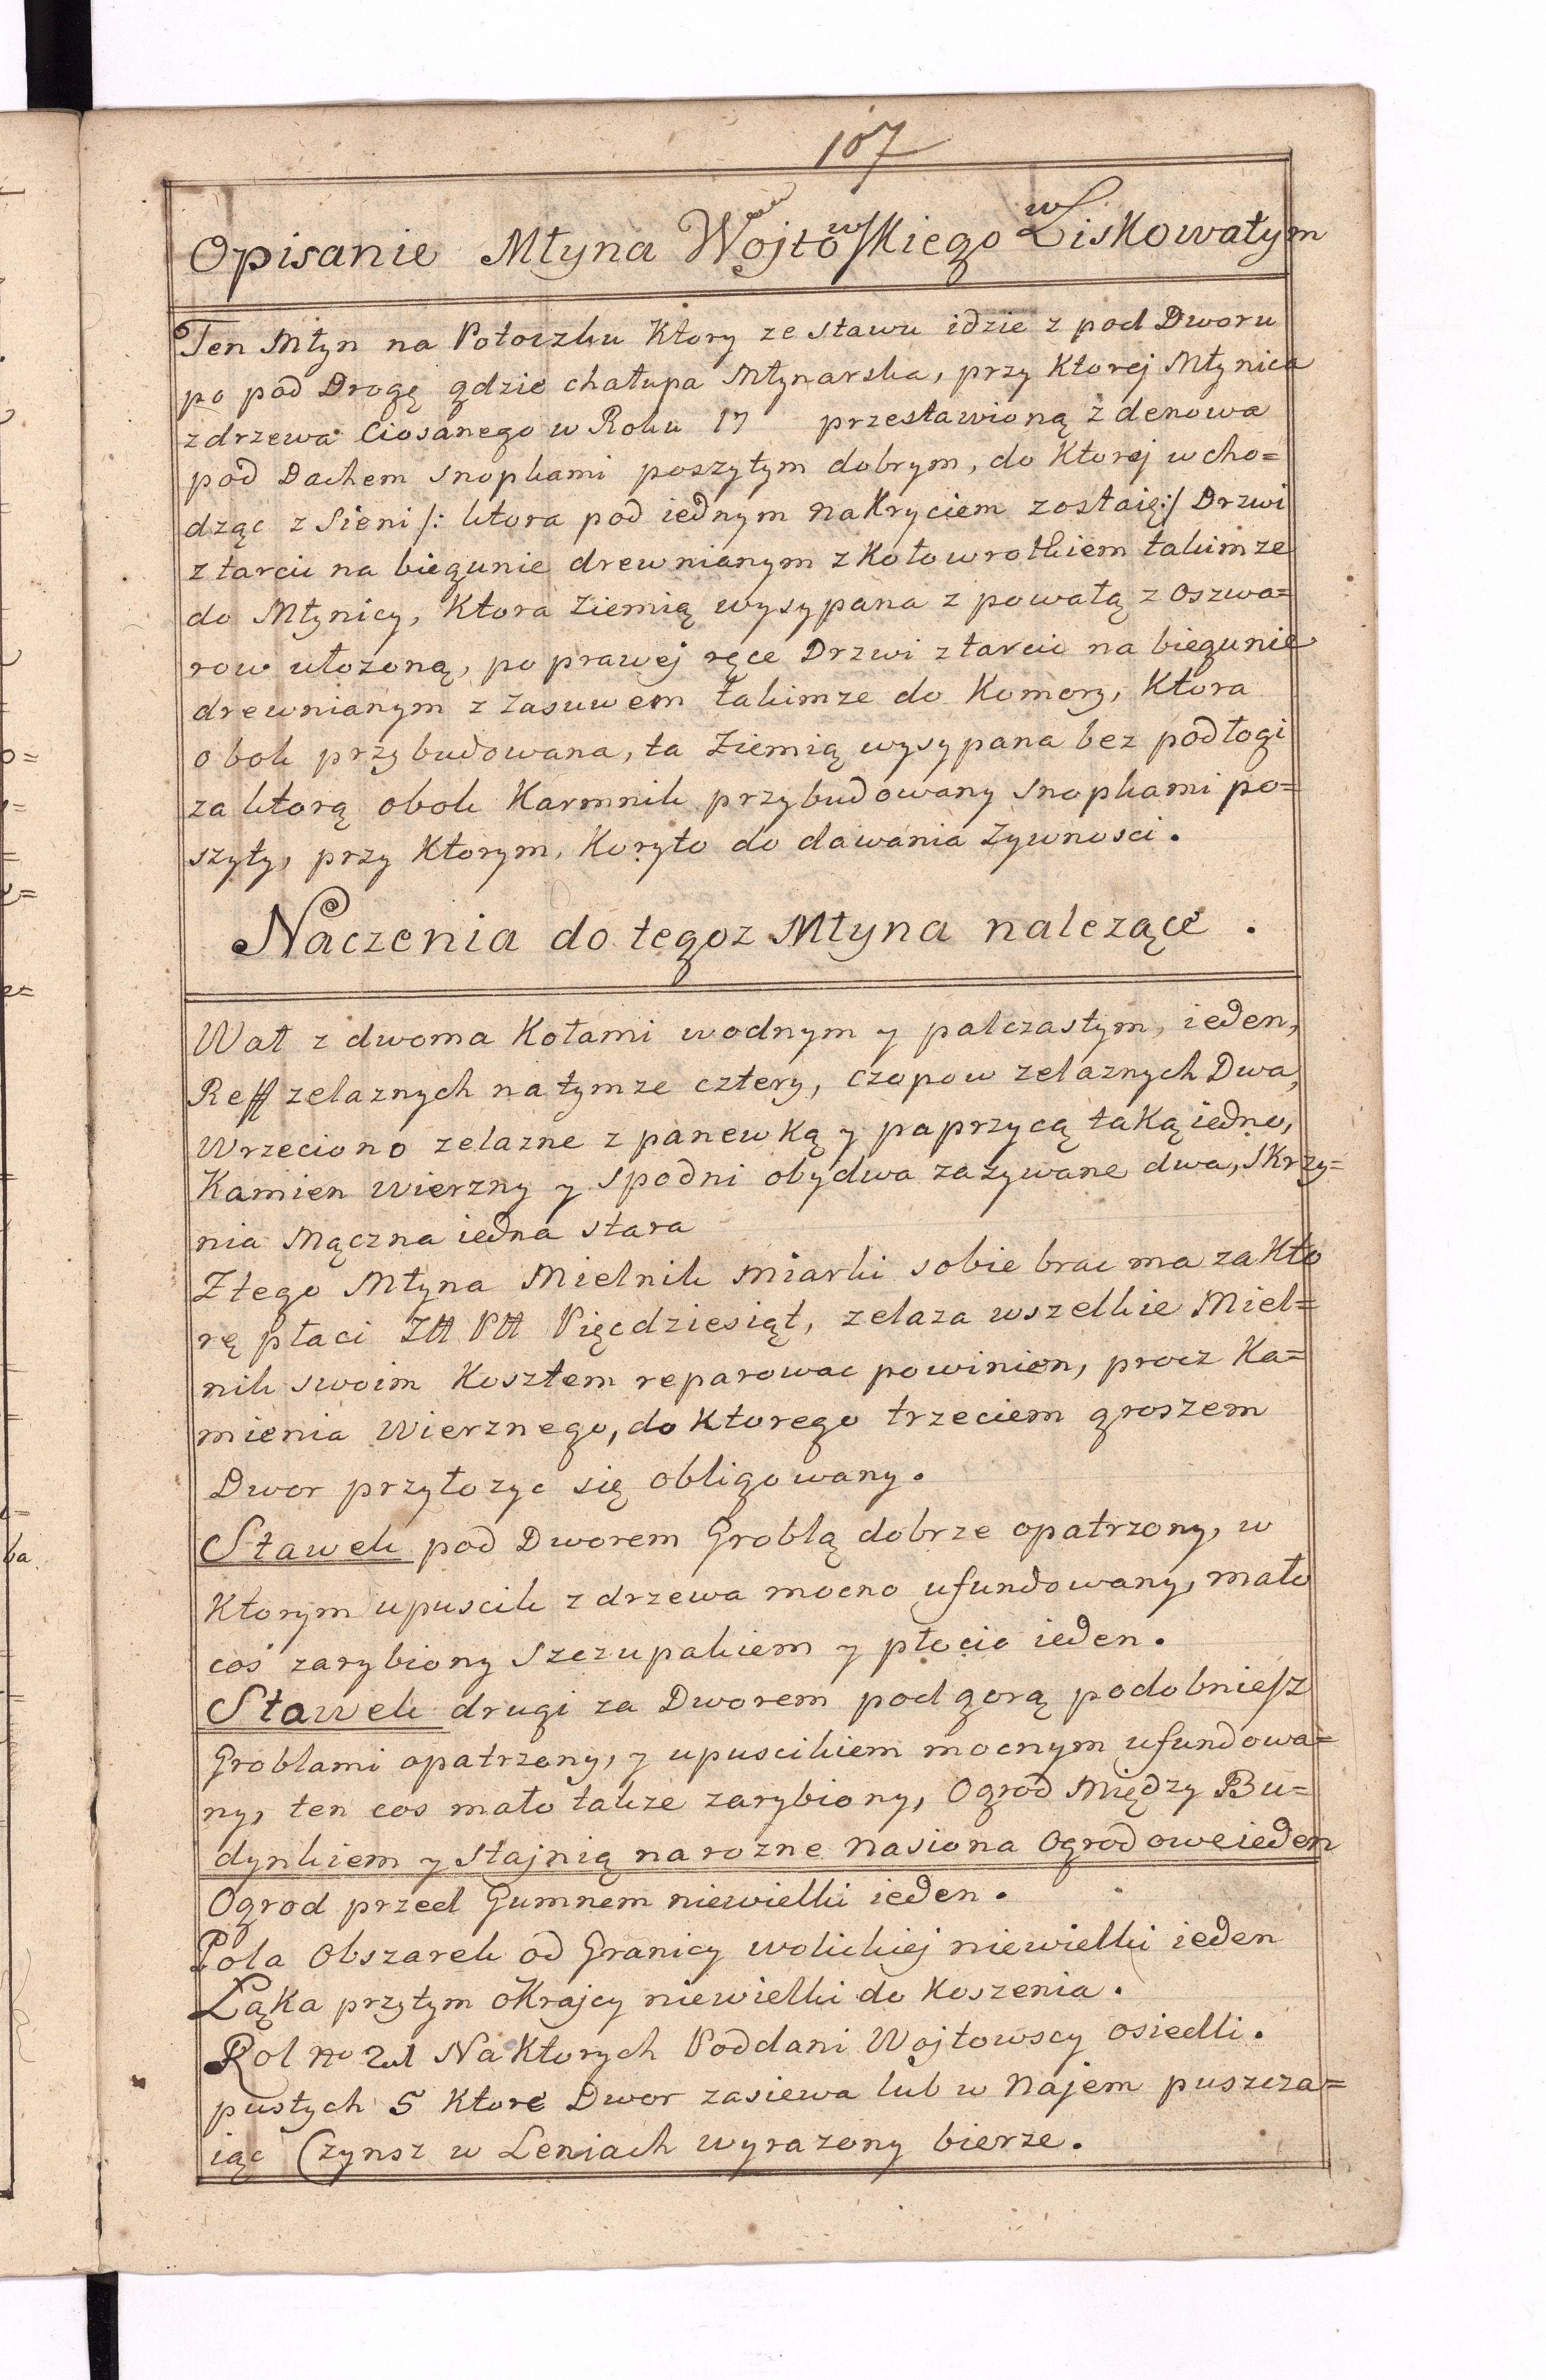 107
Opisanie Młyna Wojtowskiego w Liskowatym
Ten Młyn na Potoczku Ktory ze stawu idzie z pod Dworu
po pod Drogę gdzie chałupa Młynarska, przy Ktorej Młynica
z drzewa Ciosanego w Roku 17 przestawioną zdenowa
pod Dachem snopkami poszytym dobrym, do Ktorej wcho=
dząc z Sieni /: ktora pod iednym naKryciem zostaię :/ Drzwi
z tarcic na biegunie drewnianym z Kołowrotkiem takimze
do Młynicy, Ktora Ziemią wysypana z powałą z oszwa=
row ułozoną, po prawej ręce Drzwi z tarcic na biegunie
drewnianym z Zasuwem takimze do Komory, Ktora
obok przybudowana, ta Ziemią wysypana bez podłogi
za ktorą obok Karmnik przybudowany snopkami po=
szyty, przy Ktorym, Koryto do dawania Zywnosci.
Naczenia do tegoz Młyna nalezące.
Wał z dwoma Kołami wodnym y palczastym, ieden,
Reff zelaznych na tymze cztery, czopow zelaznych Dwa,
Wrzeciono zelazne z panewKą y paprzycą taKą iedno,
Kamien wierzny y spodni obydwa zazywane dwa, sKrzy=
nia Mączna iedna stara
Z tego Młyna Mielnik miarki sobie brac ma za Kto
rę płaci Złł Płł Pięcdziesiąt, zelaza wszelkie Miel=
nik swoim Kosztem reparowac powinien, procz Ka=
mienia Wierznego, do Ktorego trzeciem groszem
Dwor przyłozyc się obligowany.
Stawek pod Dworem Groblą dobrze opatrzony, w
Ktorym upuscik z drzewa mocno ufundowany, mało
coś zarybiony Szczupakiem y płocic ieden.
Stawek drugi za Dworem pod gorą podobniesz
Groblami opatrzony, y upuscikiem mocnym ufundowa=
ny, ten cos mało takze zarybiony, Ogrod Między Bu=
dynkiem y stajnią na rozne Nasiona Ogrodowe ieden
Ogrod przed Gumnem niewielki ieden.
Pola Obszarek od Granicy wolickiej niewielki ieden
ŁąKa przytym oKrajcy niewielki do Koszenia.
Rol No Na Ktorych Poddani Wojtowscy osiedli.
pustych 5 Ktore Dwor zasiewa lub w Najem puszcza=
iąc Czynsz w Leniach wyrazony bierze.